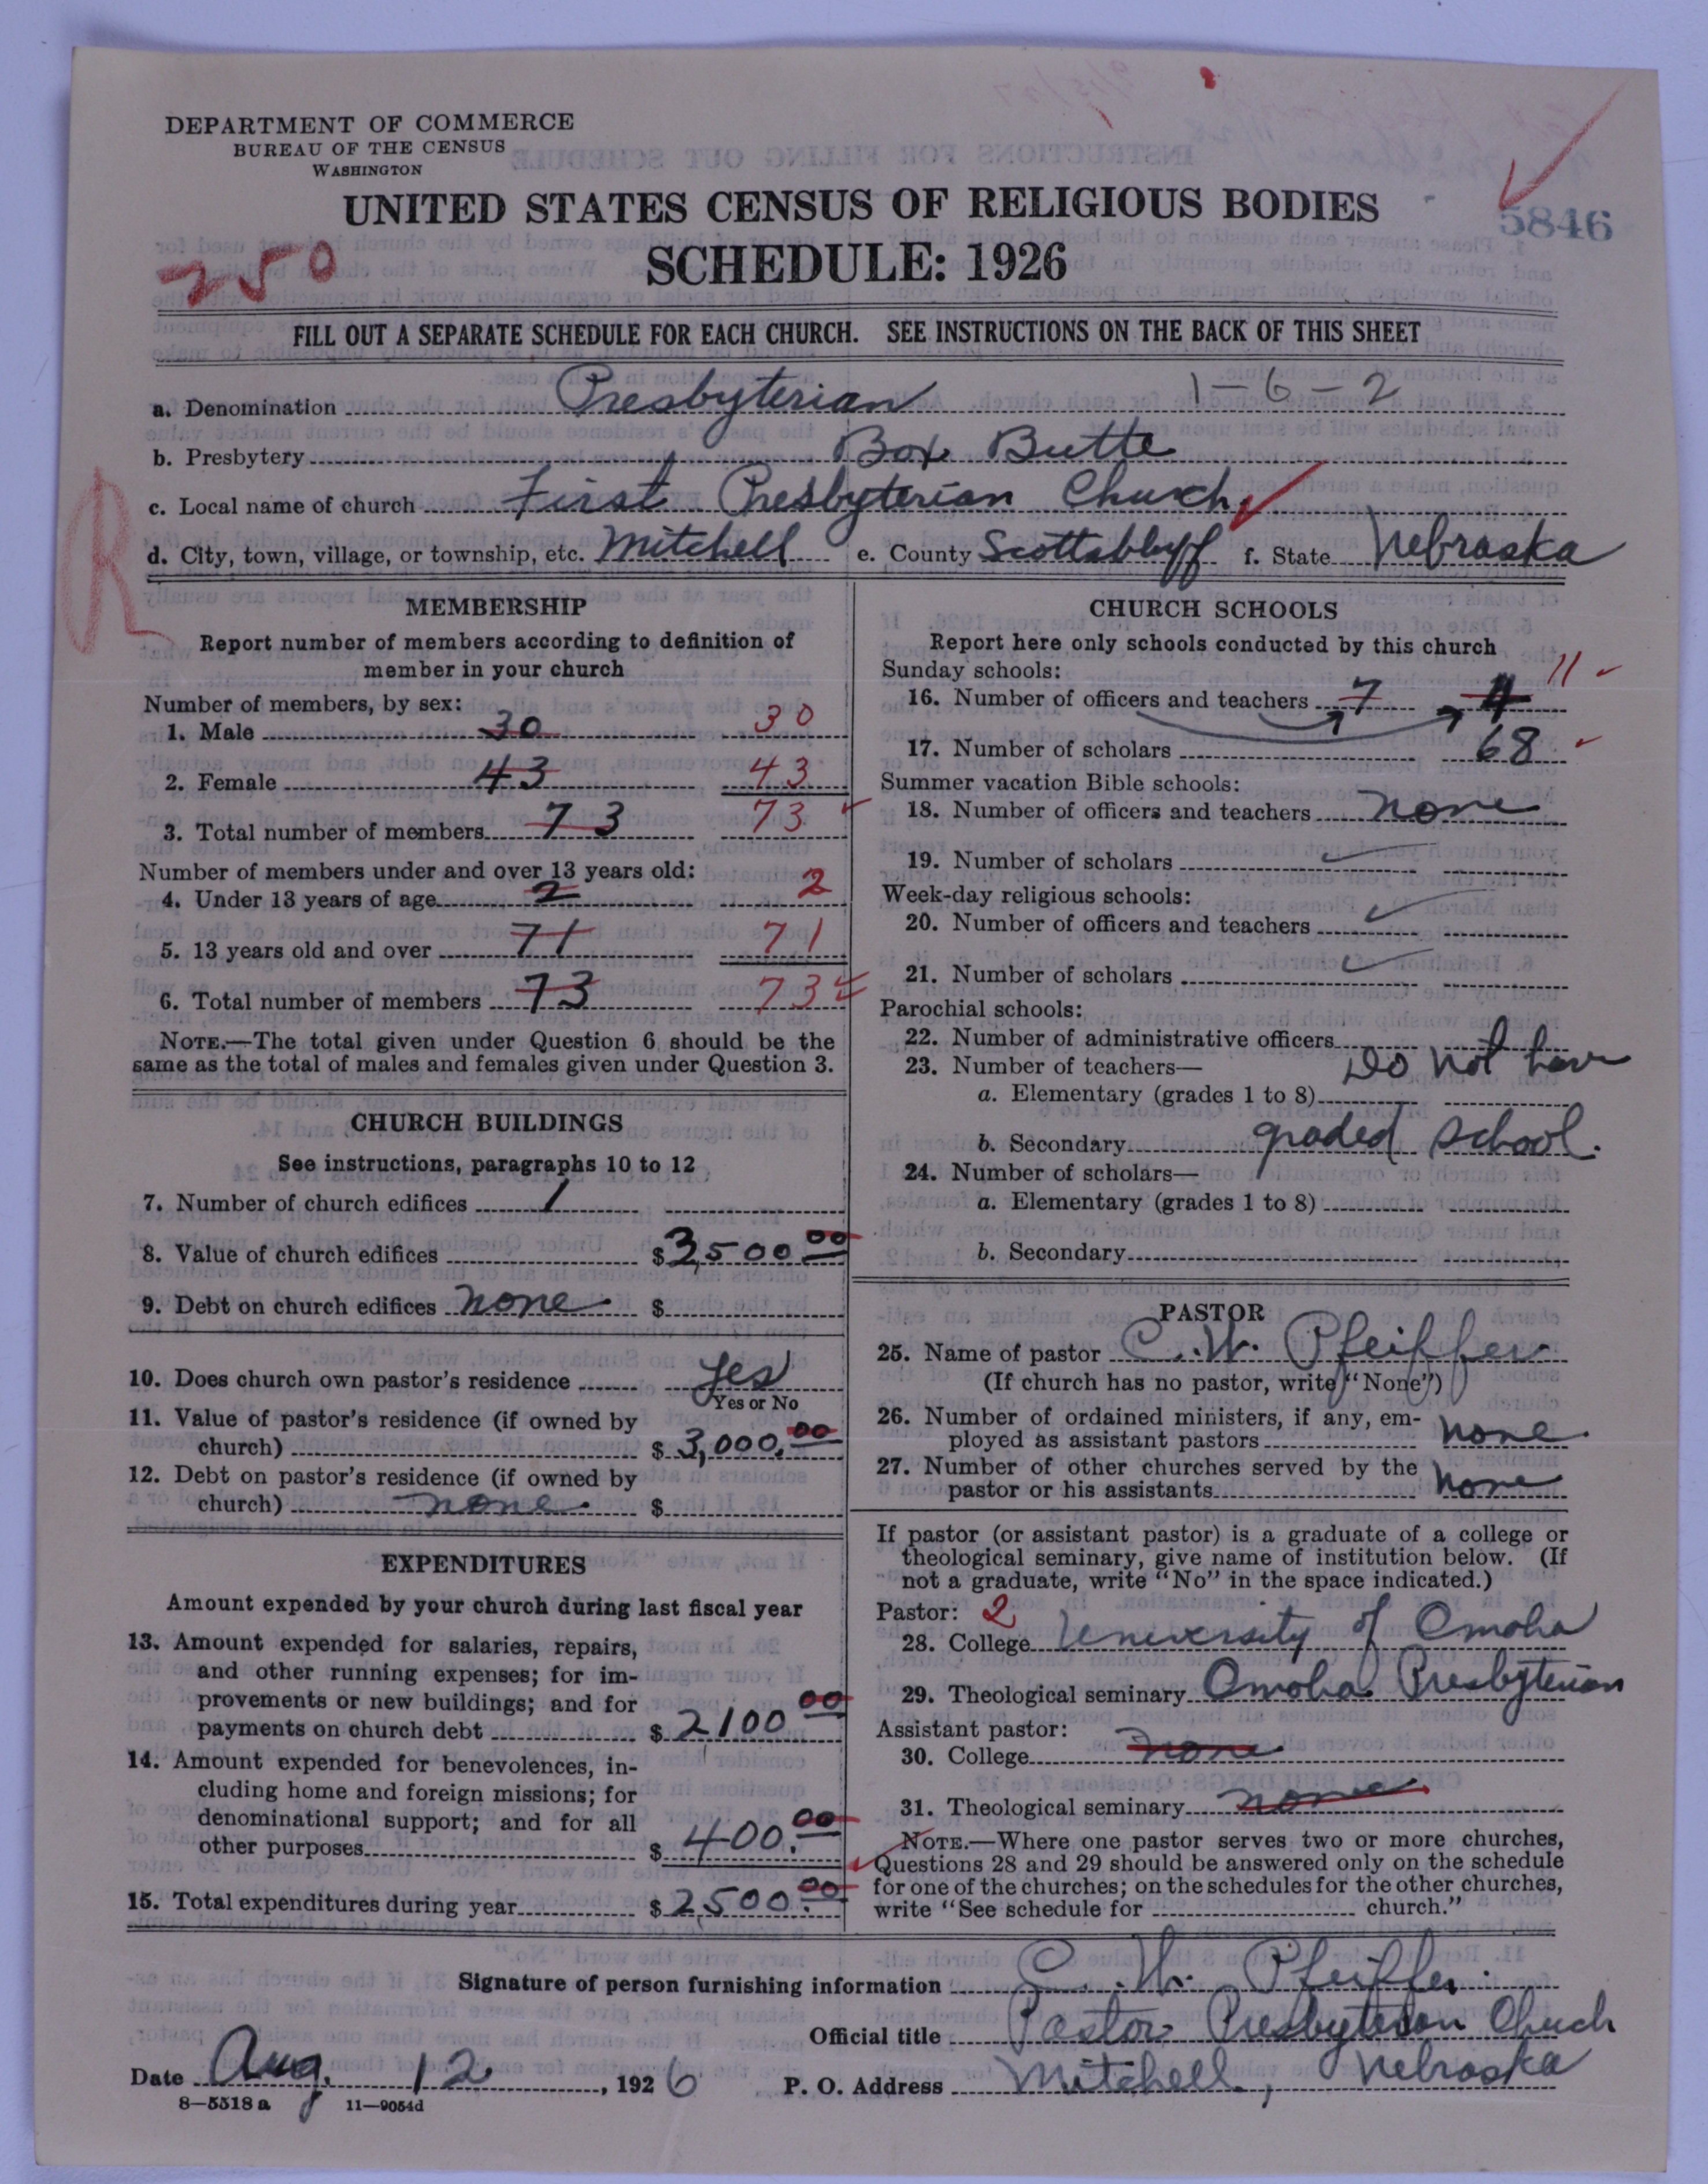 DEPARTMENT OF COMMERCE
BUREAU OF THE CENSUS
WASHINGTON
UNITED STATES CENSUS OF RELIGIOUS BODIES
5846
250
SCHEDULE: 1926
FILL OUT A SEPARATE SCHEDULE FOR EACH CHURCH. SEE INSTRUCTIONS ON THE BACK OF THIS SHEET
a. Denomination Presbyterian 1-6-2
b. Presbytery Box Butte
c. Local name of church First Presbyterian Church
d. City, town, village, or township, etc. Mitchell e. County Scottsbluff f. State Nebraska
R
MEMBERSHIP
Report number of members according to definition of
member in your church
Number of members, by sex:
1. Male 30 30
2. Female 43 43
3. Total number of members 73 73
Number of members under and over 13 years old:
4. Under 13 years of age 2 2
5. 13 years old and over 71 71
6. Total number of members 73 73
NOTE.—The total given under Question 6 should be the
same as the total of males and females given under Question 3.
CHURCH BUILDINGS
See instructions, paragraphs 10 to 12
7. Number of church edifices 1
8. Value of church edifices $3,500.00
9. Debt on church edifices none $
10. Does church own pastor's residence yes
Yes or No
11. Value of pastor's residence (if owned by
church) $3,000.00
12. Debt on pastor's residence (if owned by
church) none $
EXPENDITURES
Amount expended by your church during last fiscal year
13. Amount expended for salaries, repairs,
and other running expenses; for im-
provements or new buildings; and for
payments on church debt $2100 00
14. Amount expended for benevolences, in-
cluding home and foreign missions; for
denominational support; and for all
other purposes $400.00
15. Total expenditures during year $2,500.00
CHURCH SCHOOLS
Report here only schools conducted by this church
Sunday schools:
16. Number of officers and teachers 7 4 11
17. Number of scholars 68
Summer vacation Bible schools:
18. Number of officers and teachers none
19. Number of scholars
Week-day religious schools:
20. Number of officers and teachers
21. Number of scholars
Parochial schools:
22. Number of administrative officers
23. Number of teachers— Do not have
a. Elementary (grades 1 to 8)
b. Secondary graded school.
24. Number of scholars—
a. Elementary (grades 1 to 8)
b. Secondary
PASTOR
25. Name of pastor C. W. Pfeiffer
(If church has no pastor, write "None")
26. Number of ordained ministers, if any, em-
ployed as assistant pastors none.
27. Number of other churches served by the
pastor or his assistants none
If pastor (or assistant pastor) is a graduate of a college or
theological seminary, give name of institution below. (If
not a graduate, write "No" in the space indicated.)
Pastor: 2
28. College University of Omaha
29. Theological seminary Omaha Presbyterian
Assistant pastor:
30. College none
31. Theological seminary none
NOTE.—Where one pastor serves two or more churches,
Questions 28 and 29 should be answered only on the schedule
for one of the churches; on the schedules for the other churches,
write "See schedule for church."
Signature of person furnishing information C. W. Pfeiffer.
Official title Pastor Presbyterian Chuch
Date Aug. 12, 1926 P. O. Address Mitchell, Nebraska
8—5518 a 11—9054d